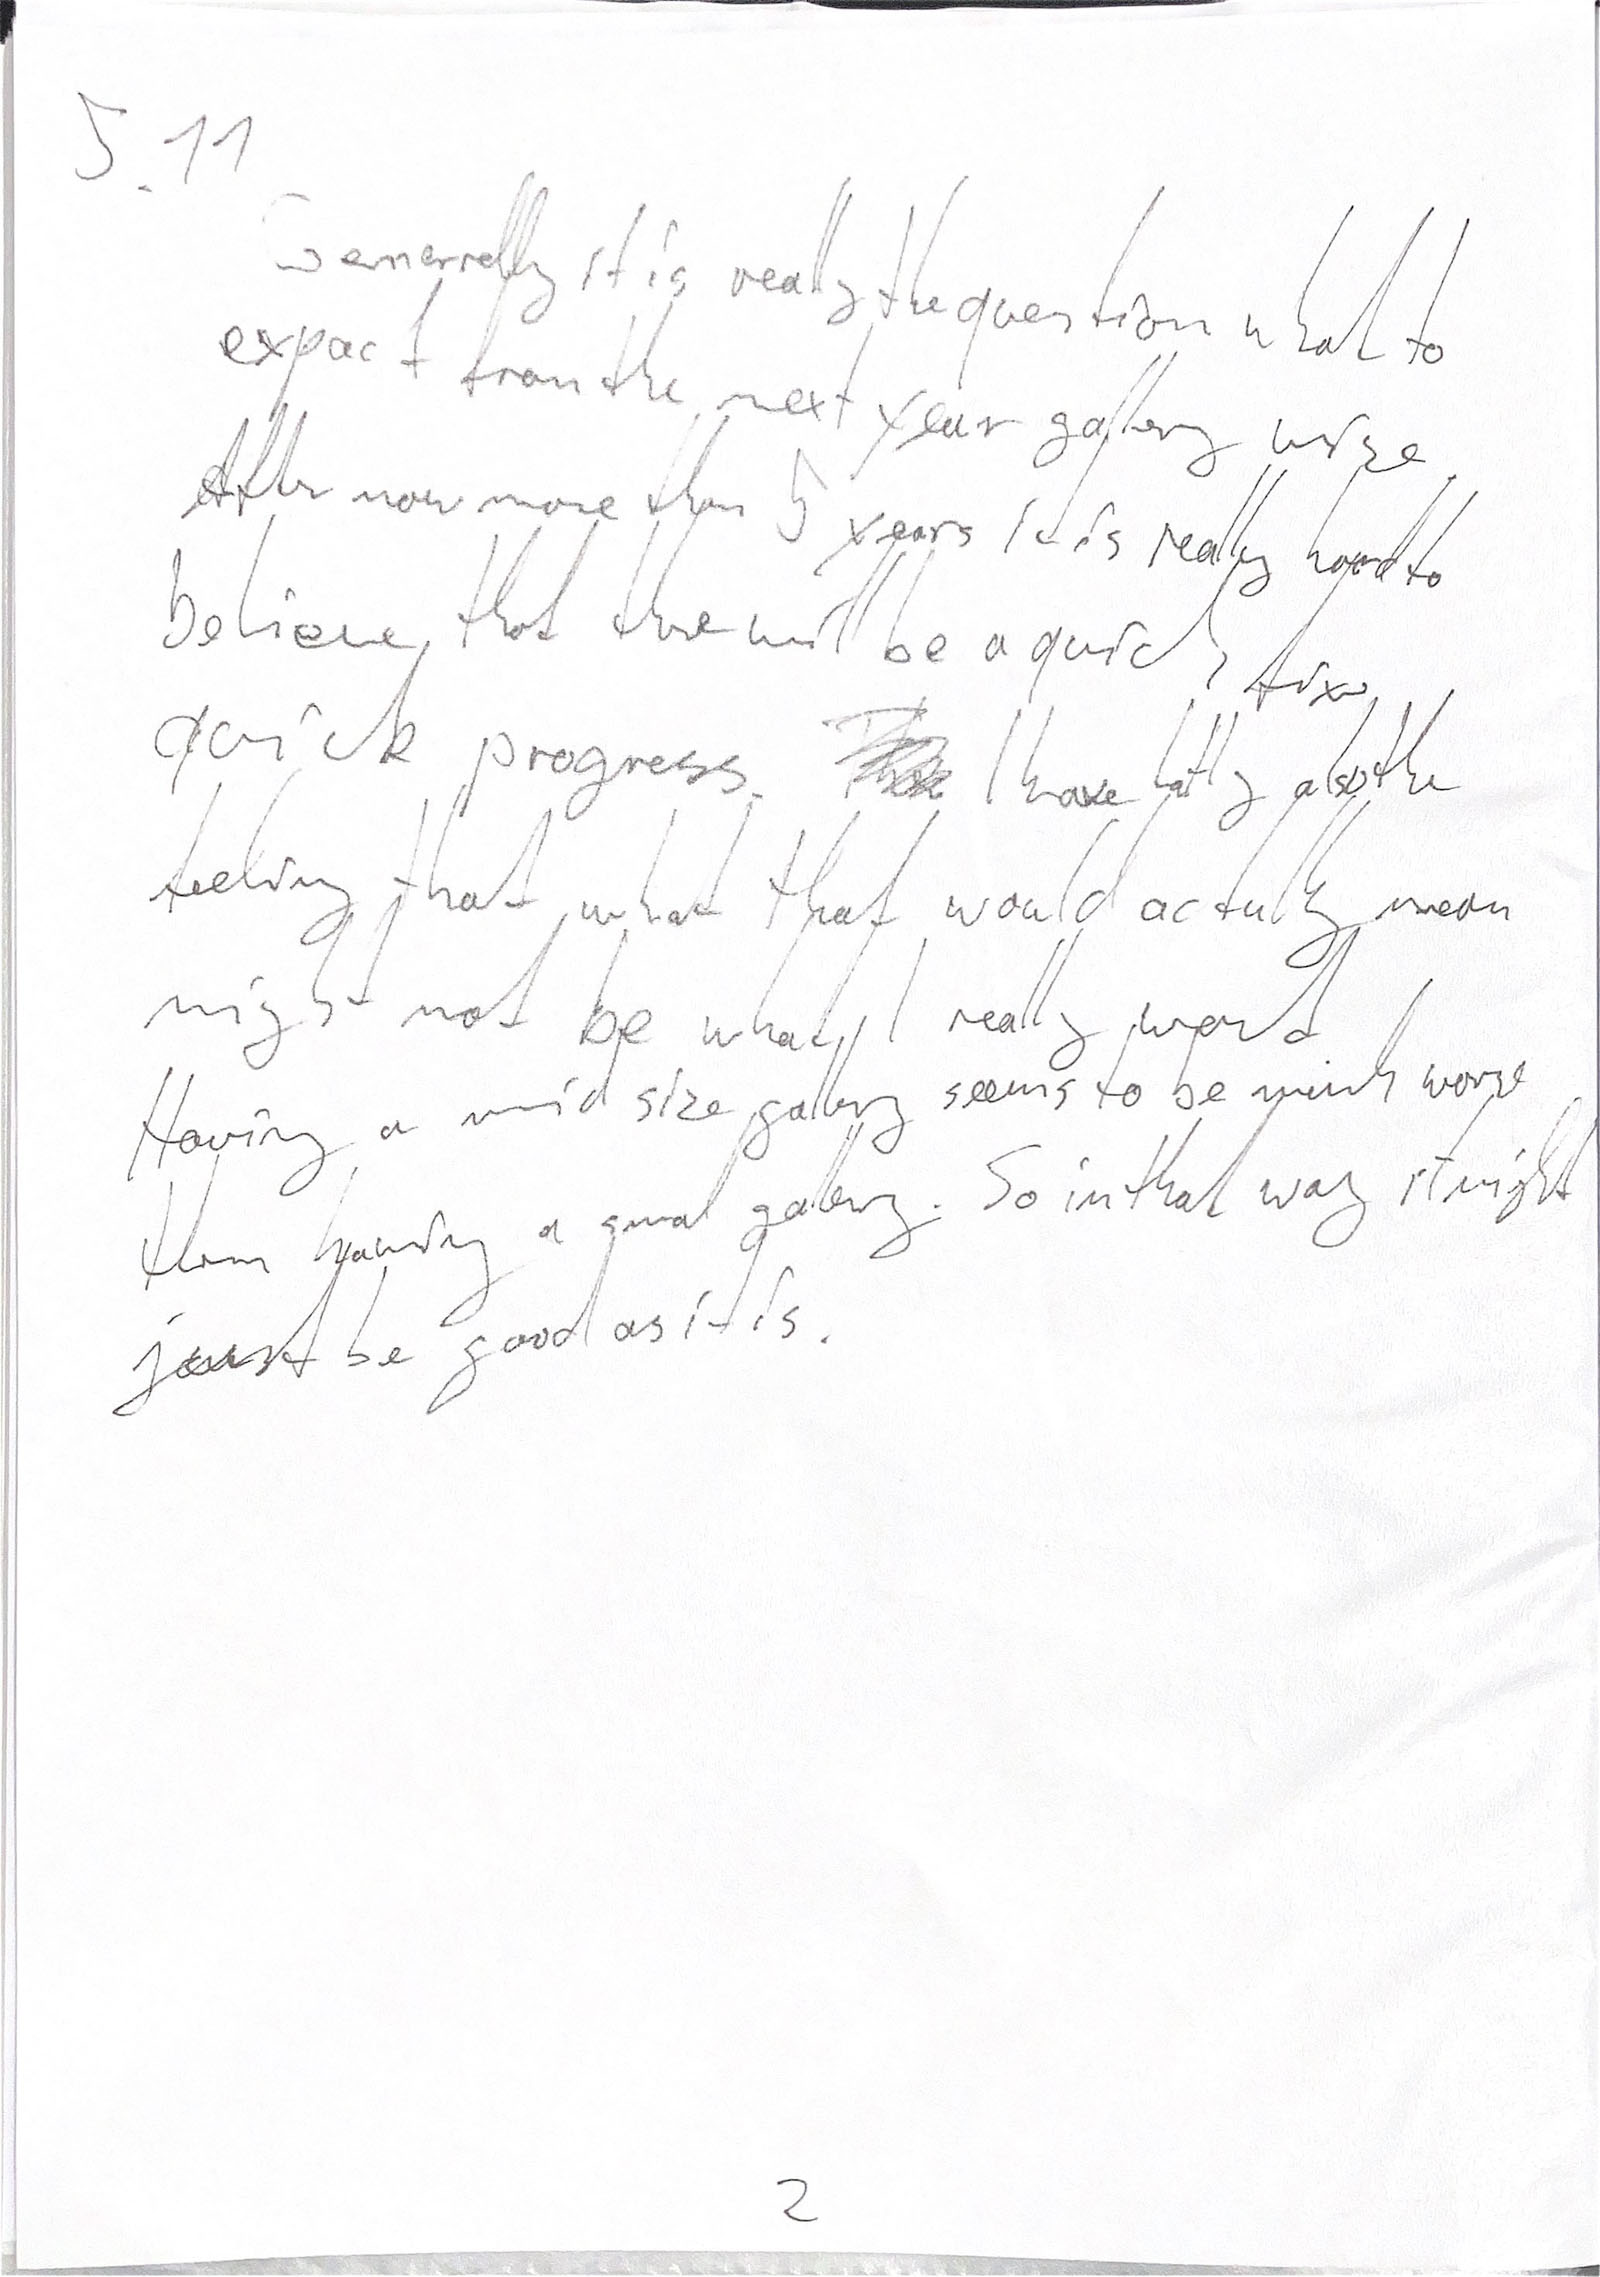 5.11
Generrelly it is really the question what to
expact from the next year gallery wise.
After now more than 5 years it is really hard to
believe, that there will be a quick fix,
quick progress. I have latly also the
feeling that what that would actully mean
might not be what I really want
Having a mid size gallery seems to be much worse
than having a smal gallery. So in that way it might
just be good as it is.
2